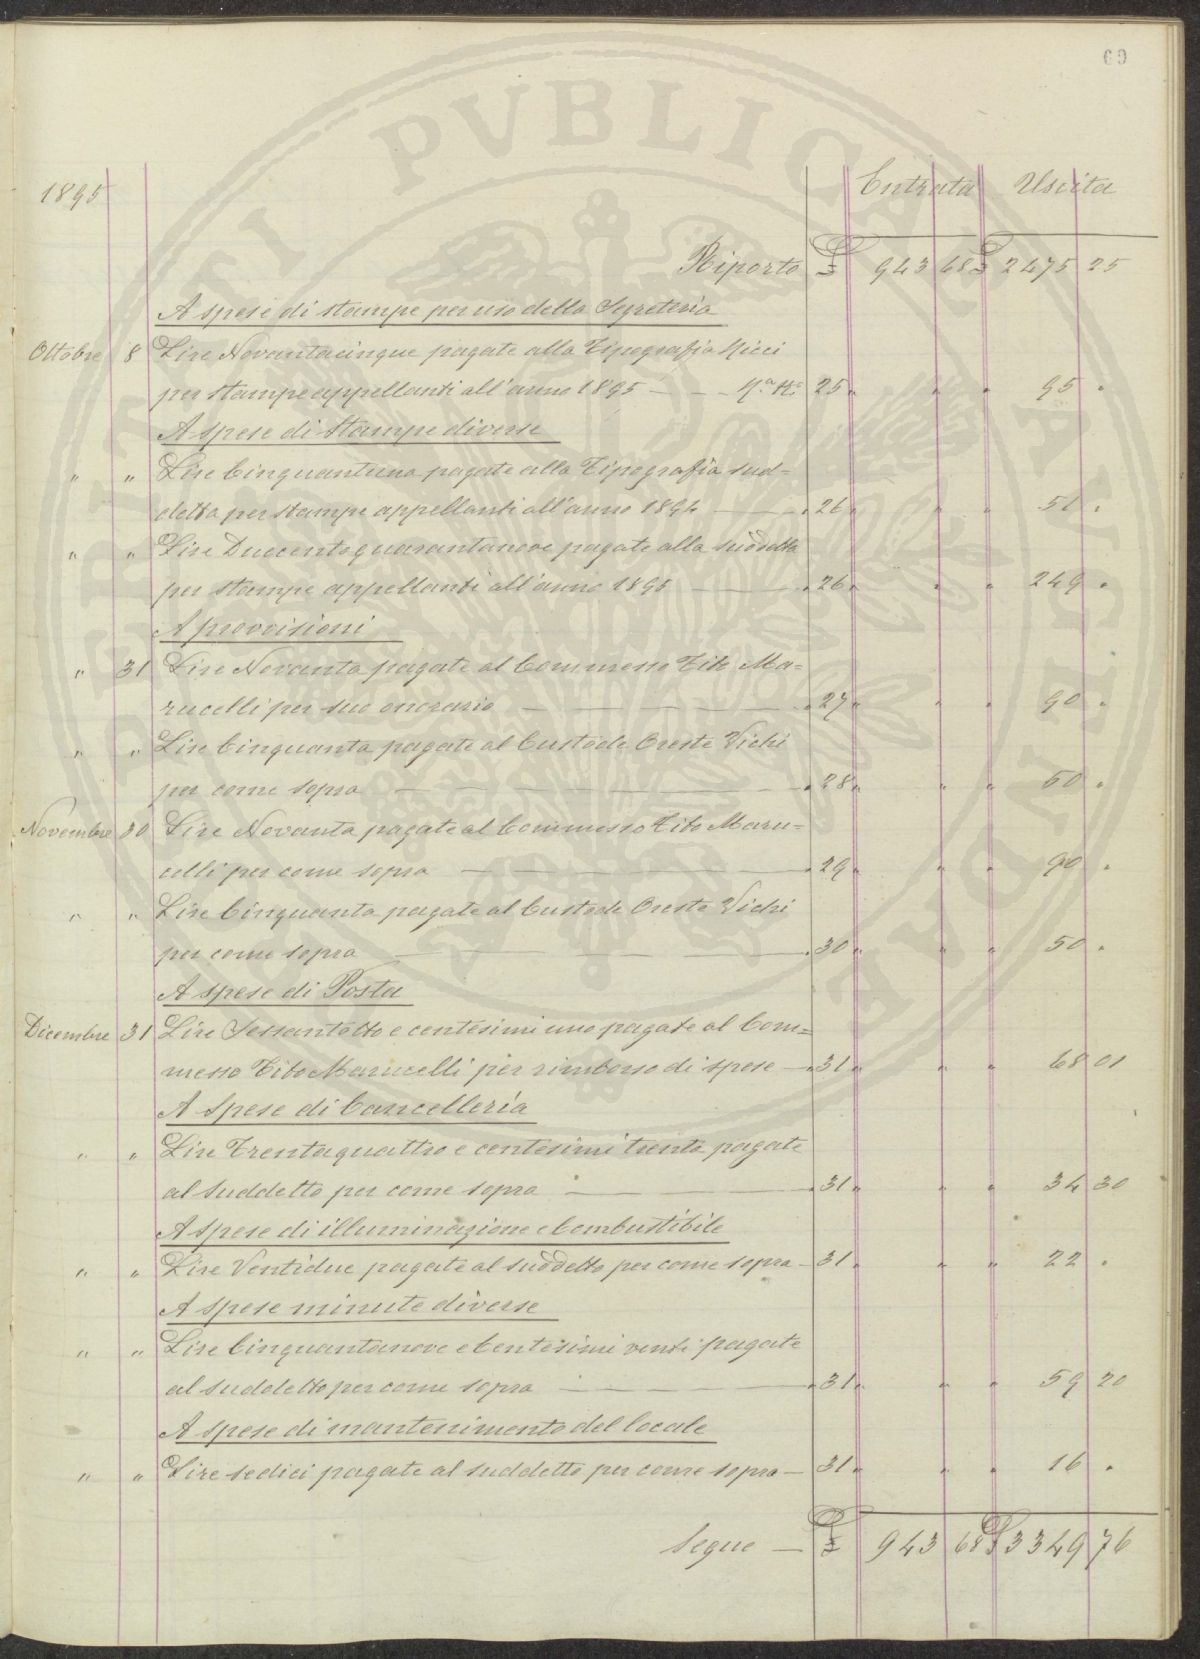 69
1895 Entrata Uscita
Riporto £ 943 68 £ 2475 25
A spese di stampe per uso della Segreteria
Ottobre 8 Lire Novantacinque pagate alla Tipografia Ricci
per stampe appellanti all'anno 1895 — — 25 " " " 95 "
A spese di Stampe diverse
" " Lire Cinquantuna pagate alla Tipografia sud=
detta per stampe appellanti all'anno 1894 — " 26 " " " 51 "
" " Lire Duecentoquarantanove pagate alla suddetta
per stampe appellanti all'anno 1895 — " 26 " " " 249 "
A provvisioni
" 31 Lire Novanta pagate al Commesso Tito Ma=
rucelli per suo onorario — " 27 " " " 90 "
" " Lire Cinquanta pagate al Custode Oreste Vichi
per come sopra — " 28 " " " 50 "
Novembre 30 Lire Novanta pagate al Commesso Tito Maru=
celli per come sopra — " 29 " " " 90 "
" " Lire Cinquanta pagate al Custode Oreste Vichi
per come sopra — " 30 " " " 50 "
A spese di Posta
Dicembre 31 Lire Sessantotto e centesimi uno pagate al Com=
messo Tito Marucelli per rimborso di spese — " 31 " " " 68 01
A Spese di Cancelleria
" " Lire Trentaquattro e centesimi trenta pagate
al Suddetto per come sopra — " 31 " " " 34 30
A spese di illuminazione e Combustibile
" " Lire Ventidue pagate al suddetto per come sopra — 31 " " " 22 "
A spese minute diverse
" " Lire Cinquantanove e Centesimi venti pagate
al suddetto per come sopra — " 31 " " " 59 20
A spese di mantenimento del locale
" " Lire sedici pagate al suddetto per come sopra — 31 " " " 16 "
Segue — £ 943 68 £ 3349 76